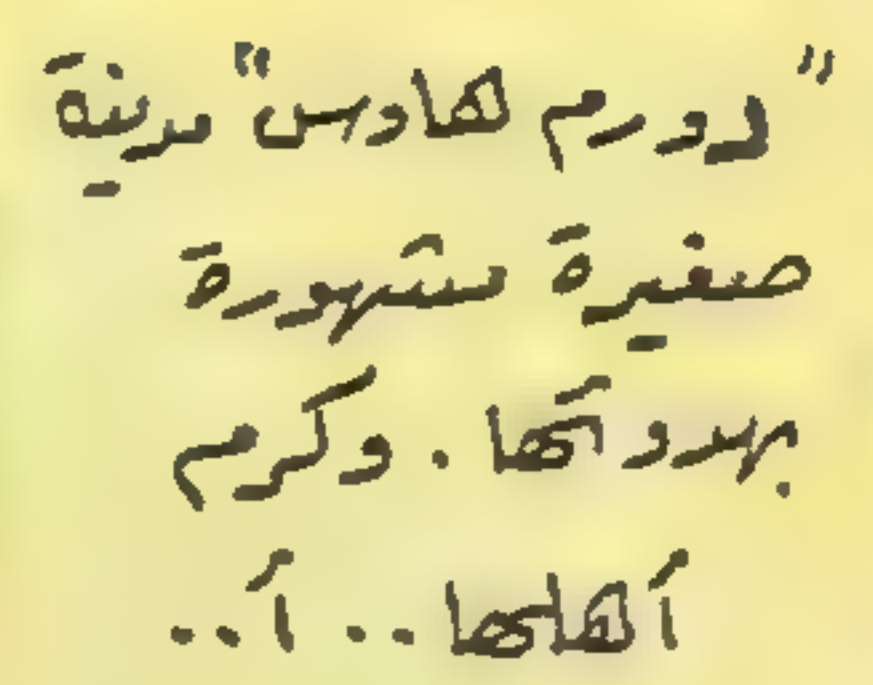 "دورم هاوس" مدينة
صغيرة مشهورة
بهدوئها. وكرم
أهلها.. أ..